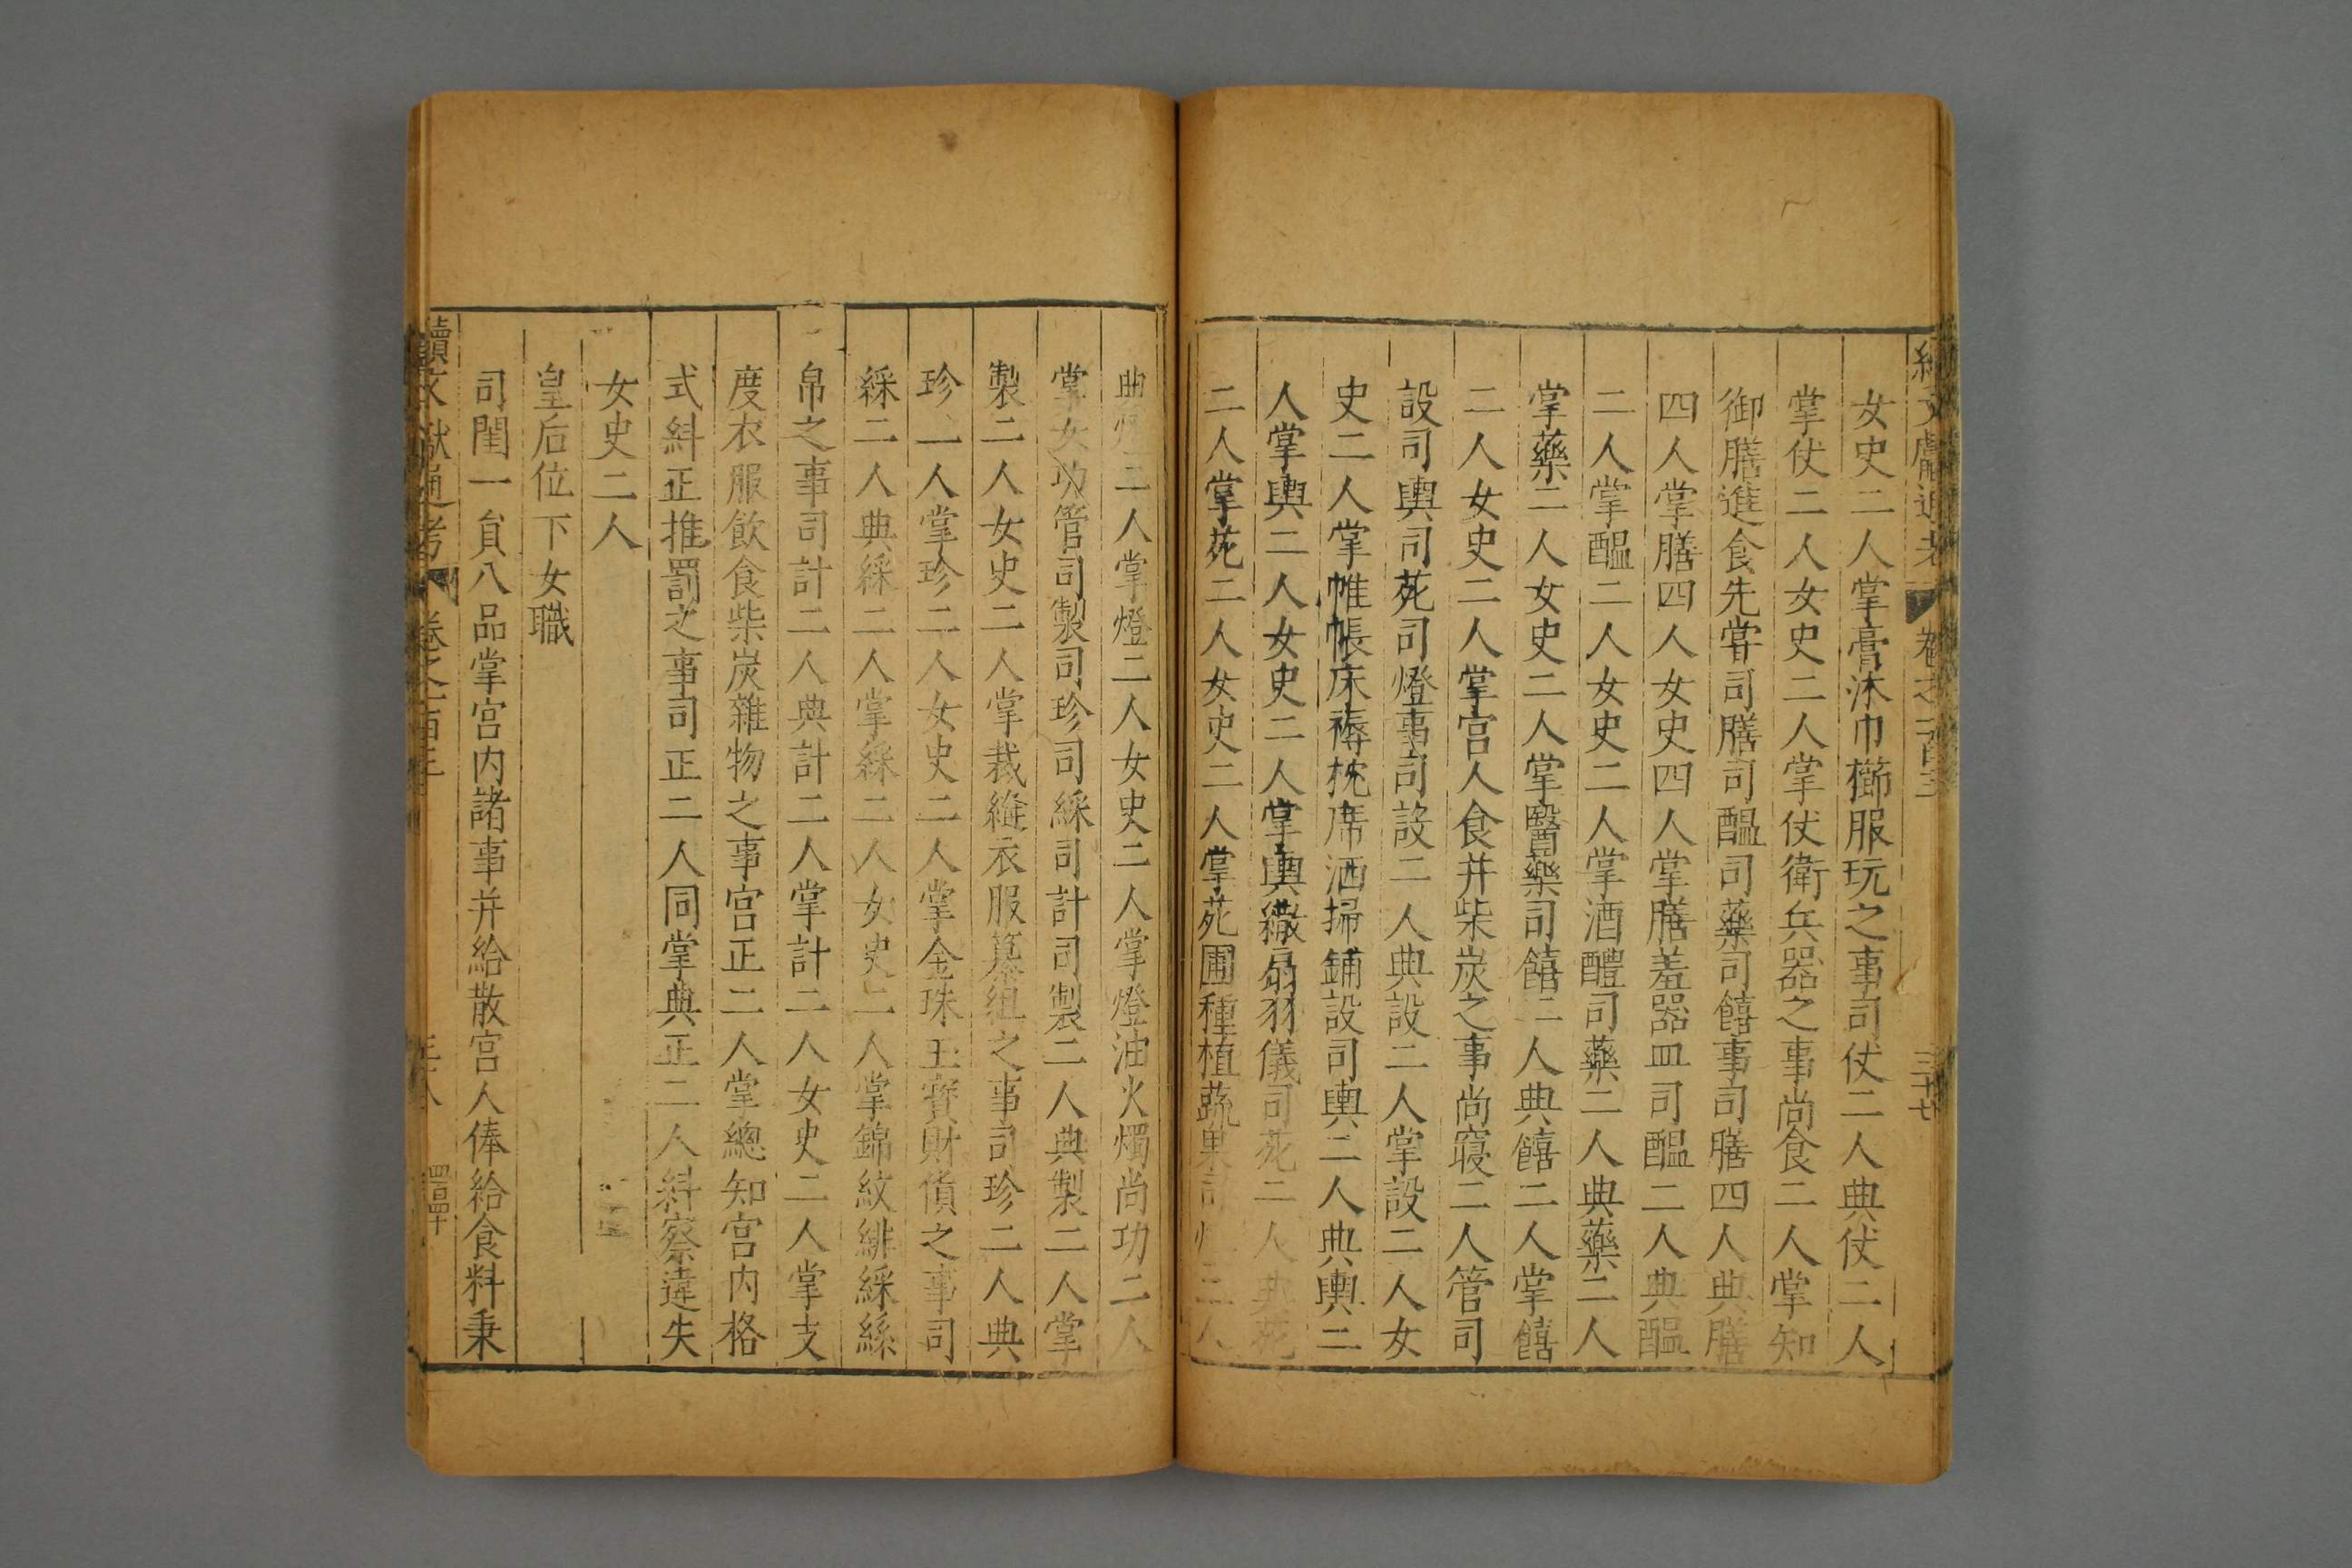 續文獻通考 卷之一百三 三十七
女史二人掌膏沐巾櫛服玩之事司仗二人典仗二人
掌仗二人女史二人掌仗衛兵器之事尚食二人掌知
御膳進食先嘗司膳司醞司藥司饎事司膳四人典膳
四人掌膳四人女史四人掌膳羞器皿司醞二人典醞
二人掌醞二人女史二人掌酒醴司藥二人典藥二人
掌藥二人女史二人掌醫藥司饎二人典饎二人掌饎
二人女史二人掌宮人食并柴炭之事尚寢二人管司
設司輿司苑司燈事司設二人典設二人掌設二人女
史二人掌帷帳床褥枕席洒掃鋪設司輿二人典輿二
人掌輿二人女史二人掌輿繖扇羽儀司苑二人典苑
二人掌苑二人女史二人掌苑圃種植蔬果司燈二人
典燈二人掌燈二人女史二人掌燈油火燭尚功二人
掌女功管司製司珍司綵司計司製二人典製二人掌
製二人女史二人掌裁縫衣服纂組之事司珍二人典
珍二人掌珍二人女史二人掌金珠玉寶財貨之事司
綵二人典綵二人掌綵二人女史二人掌錦紋緋綵絲
帛之事司計二人典計二人掌計二人女史二人掌支
度衣服飲食柴炭雜物之事宮正二人掌總知宮内格
式糾正推罰之事司正二人同掌典正二人糾察違失
女史二人
皇后位下女職
司閨一貟八品掌宮内諸事并給散宮人俸給食料秉
續文獻通考 卷之一百三